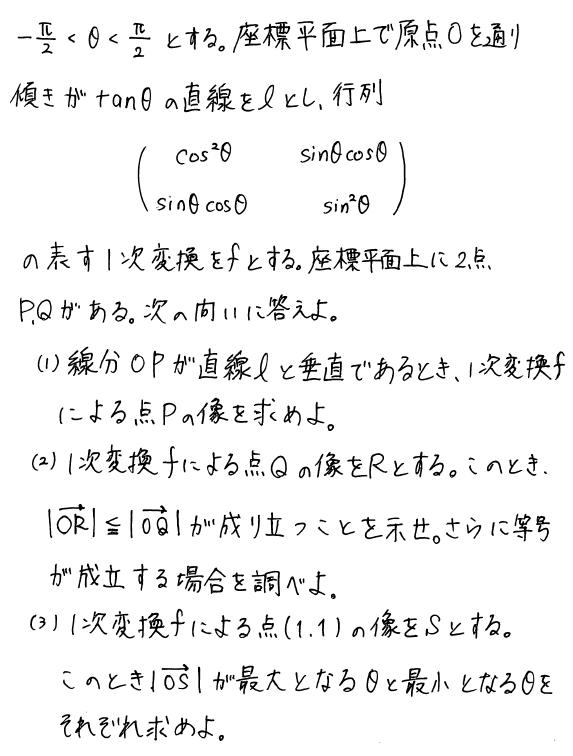 -π/2 < θ < π/2 とする。座標平面上で原点Oを通り
傾きが tanθ の直線を l とし、行列
( cos²θ sinθcosθ )
( sinθcosθ sin²θ )
の表す1次変換をfとする。座標平面上に2点
P,Qがある。次の問いに答えよ。
(1) 線分OPが直線lと垂直であるとき、1次変換f
による点Pの像を求めよ。
(2) 1次変換fによる点Qの像をRとする。このとき、
|OR→|≦|OQ→|が成り立つことを示せ。さらに等号
が成立する場合を調べよ。
(3) 1次変換fによる点(1.1)の像をSとする。
このとき|OS→|が最大となるθと最小となるθを
それぞれ求めよ。